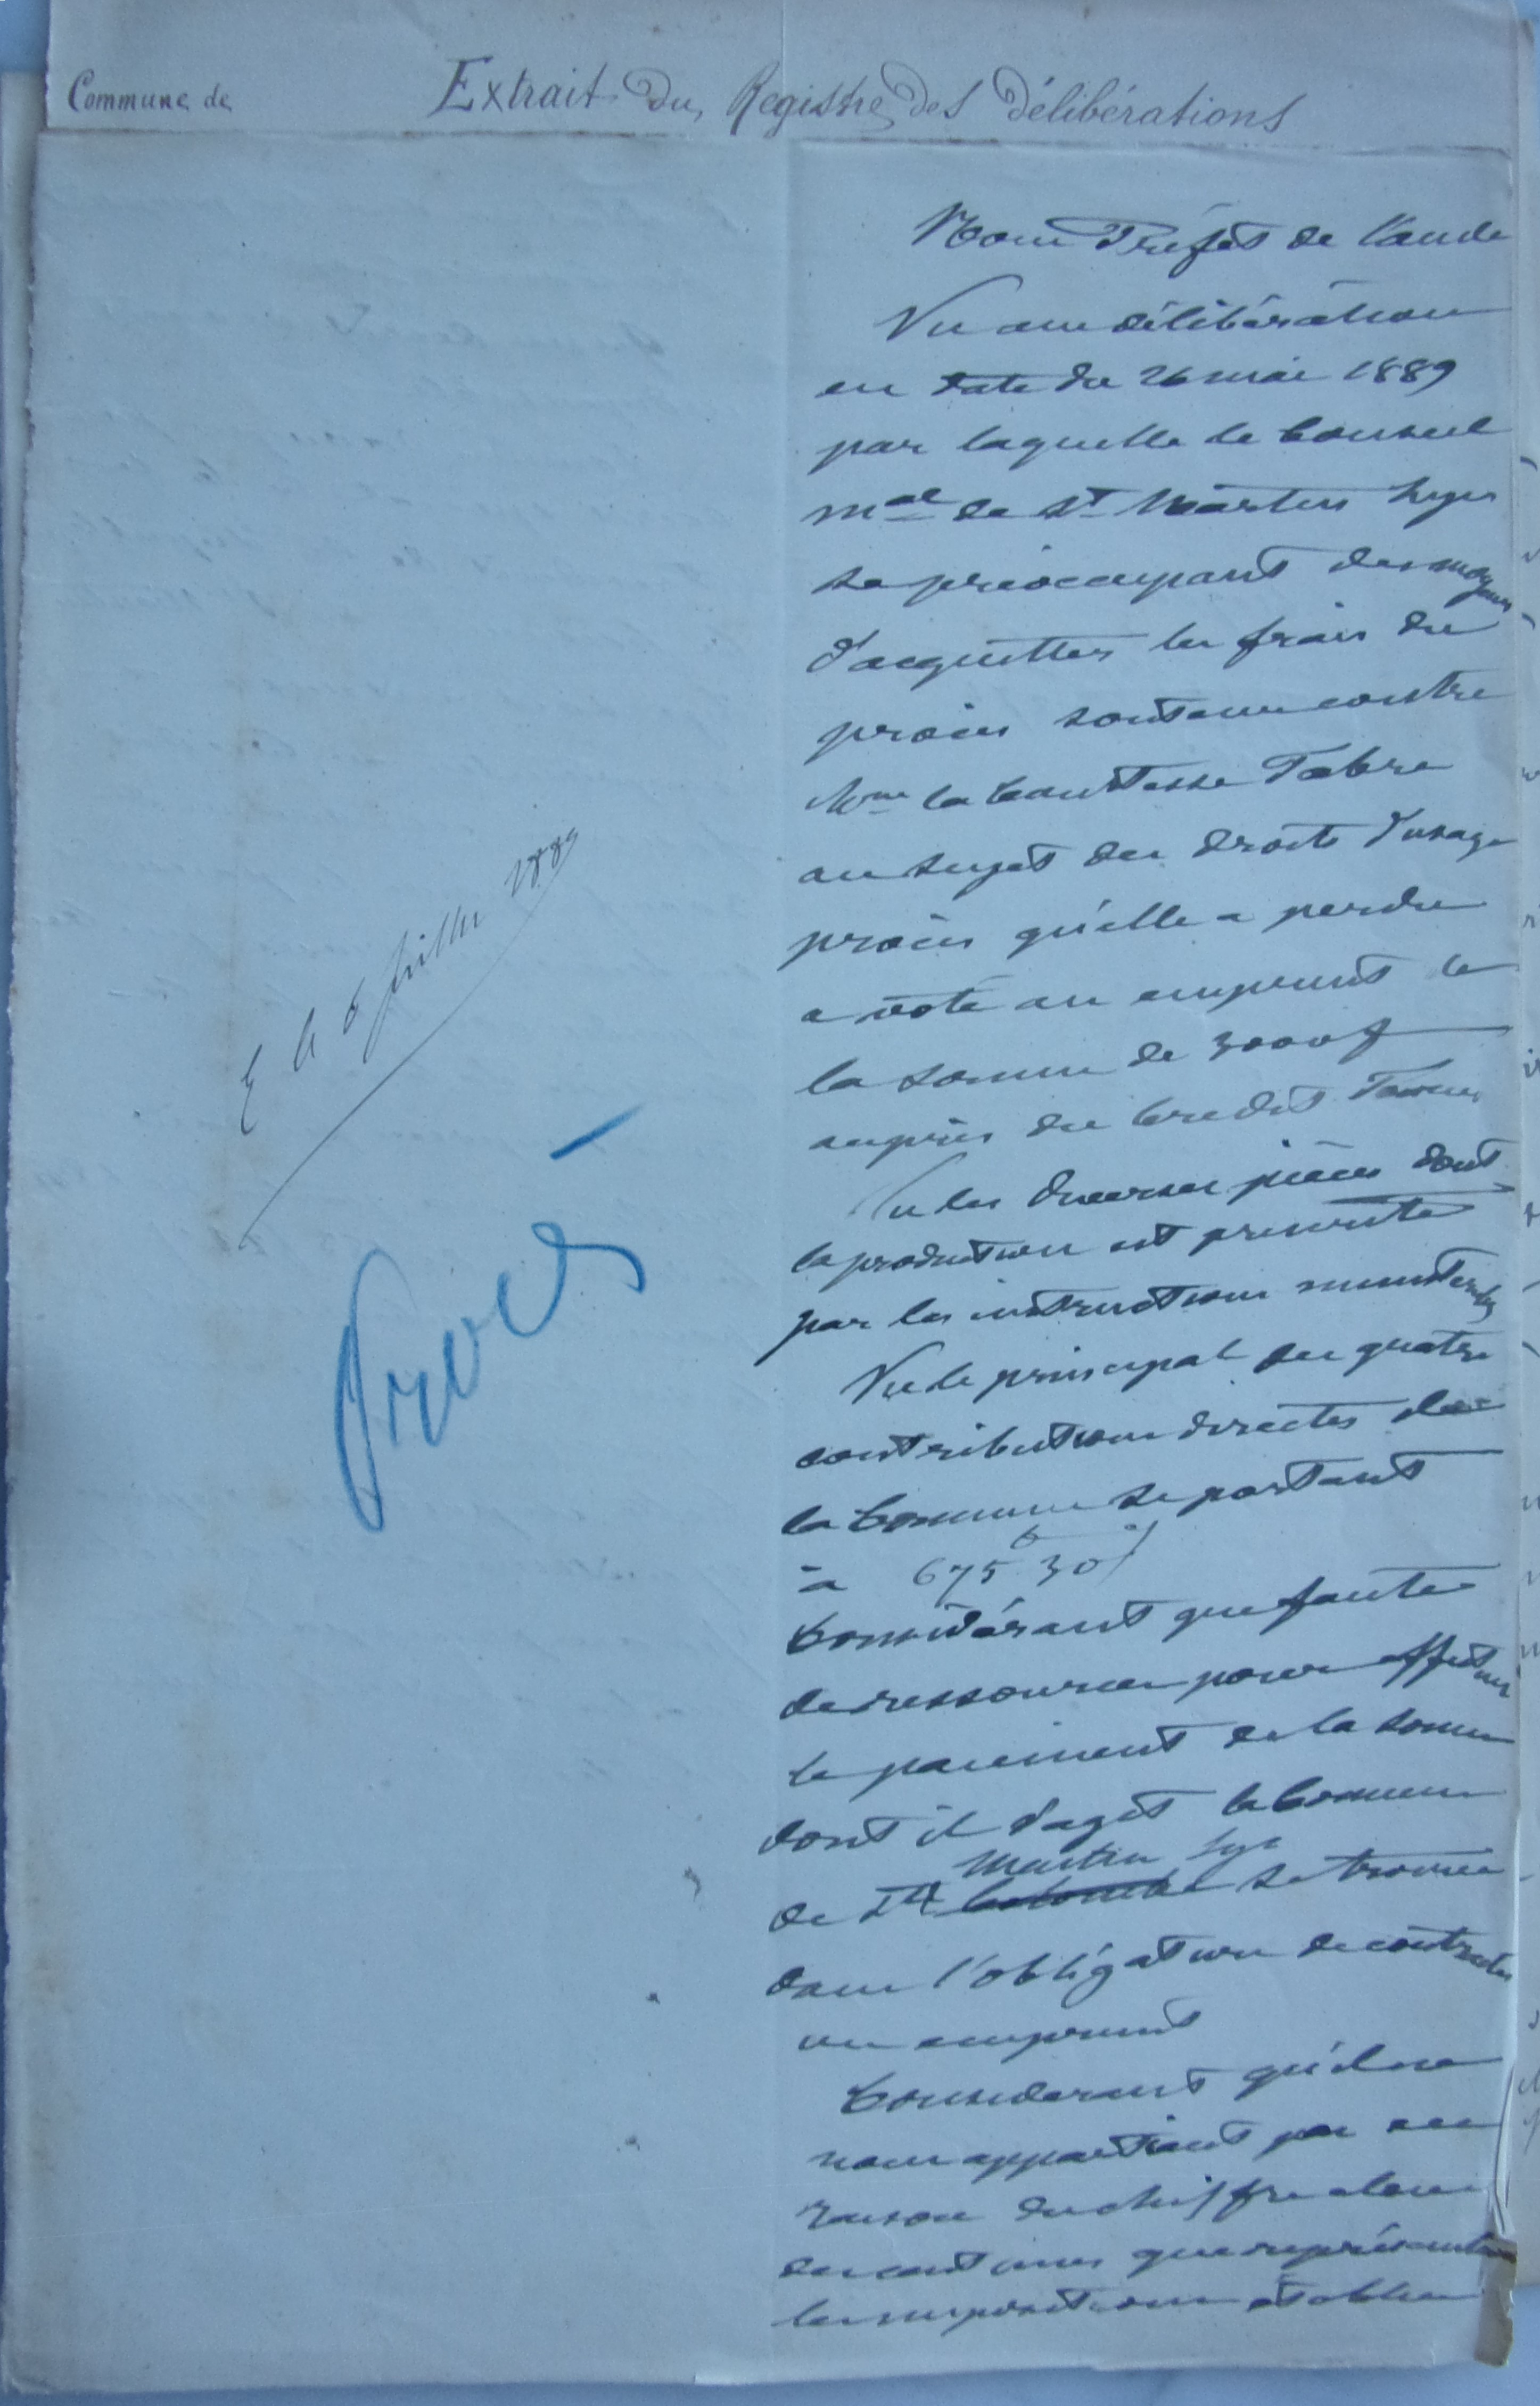 Commune de
Extrait du Registre des délibérations
Nous Préfet de l'aude
Vu une délibération
en date du 26 mai 1889
par laquelle le Conseil
mal de St Martin Lys
se préoccupant des moyens
d'acquitter les frais du
procès soutenu contre
Mme la Comtesse Fabre
au sujet des droits d'usage
procès qu'elle a perdu
a voté un emprunt de
la somme de 3000f
auprès du Credit Foncier
Vu les diverses pièces dont
la production est prescrite
par les instructions ministerielles
Vu le principal des quatre
contributions directes de
la Commune se portant
à 675 f 30
Considérant que faute
de ressources pour effectuer
le paiement de la somme
dont il s'agit la Commune
Martin Lys
de St Colombe se trouve
dans l'obligation de contracter
un emprunt
Considerant qu'il ne
nous appartient pas en
raison du chiffre élevé
des centimes que représentent
les impositions établies
E le 6 juillet 1889
Procès